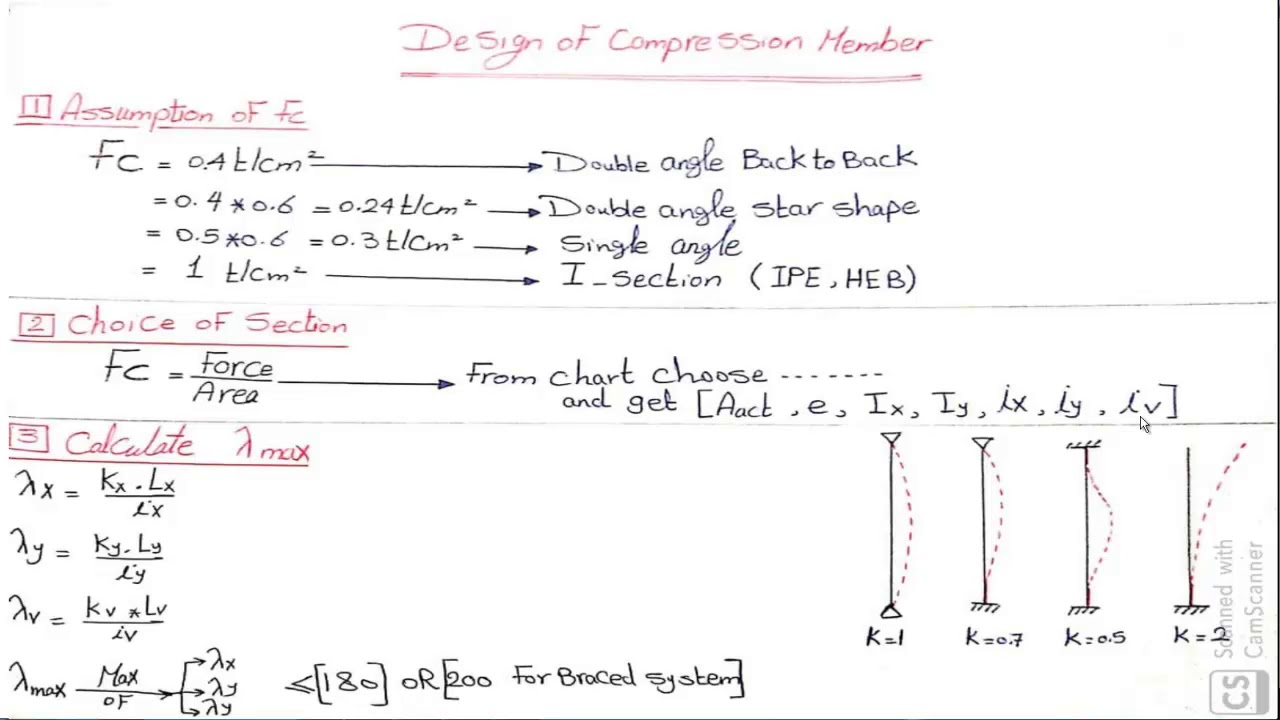 Design of Compression Member
1 Assumption of fc
Fc = 0.4 t/cm² → Double angle Back to Back
= 0.4 * 0.6 = 0.24 t/cm² → Double angle star shape
= 0.5 * 0.6 = 0.3 t/cm² → Single angle
= 1 t/cm² → I-section (IPE, HEB)
2 Choice of Section
Fc = Force / Area → From chart choose --------
and get [Aact, e, Ix, Iy, ix, iy, iv]
3 Calculate λmax
λx = Kx . Lx / ix
λy = Ky . Ly / iy
λv = Kv * Lv / iv
K=1 K=0.7 K=0.5 K=2
λmax Max OF → λx
→ λy
→ λy
≤ [180] OR [200 For Braced system]
Scanned with
CamScanner
CS